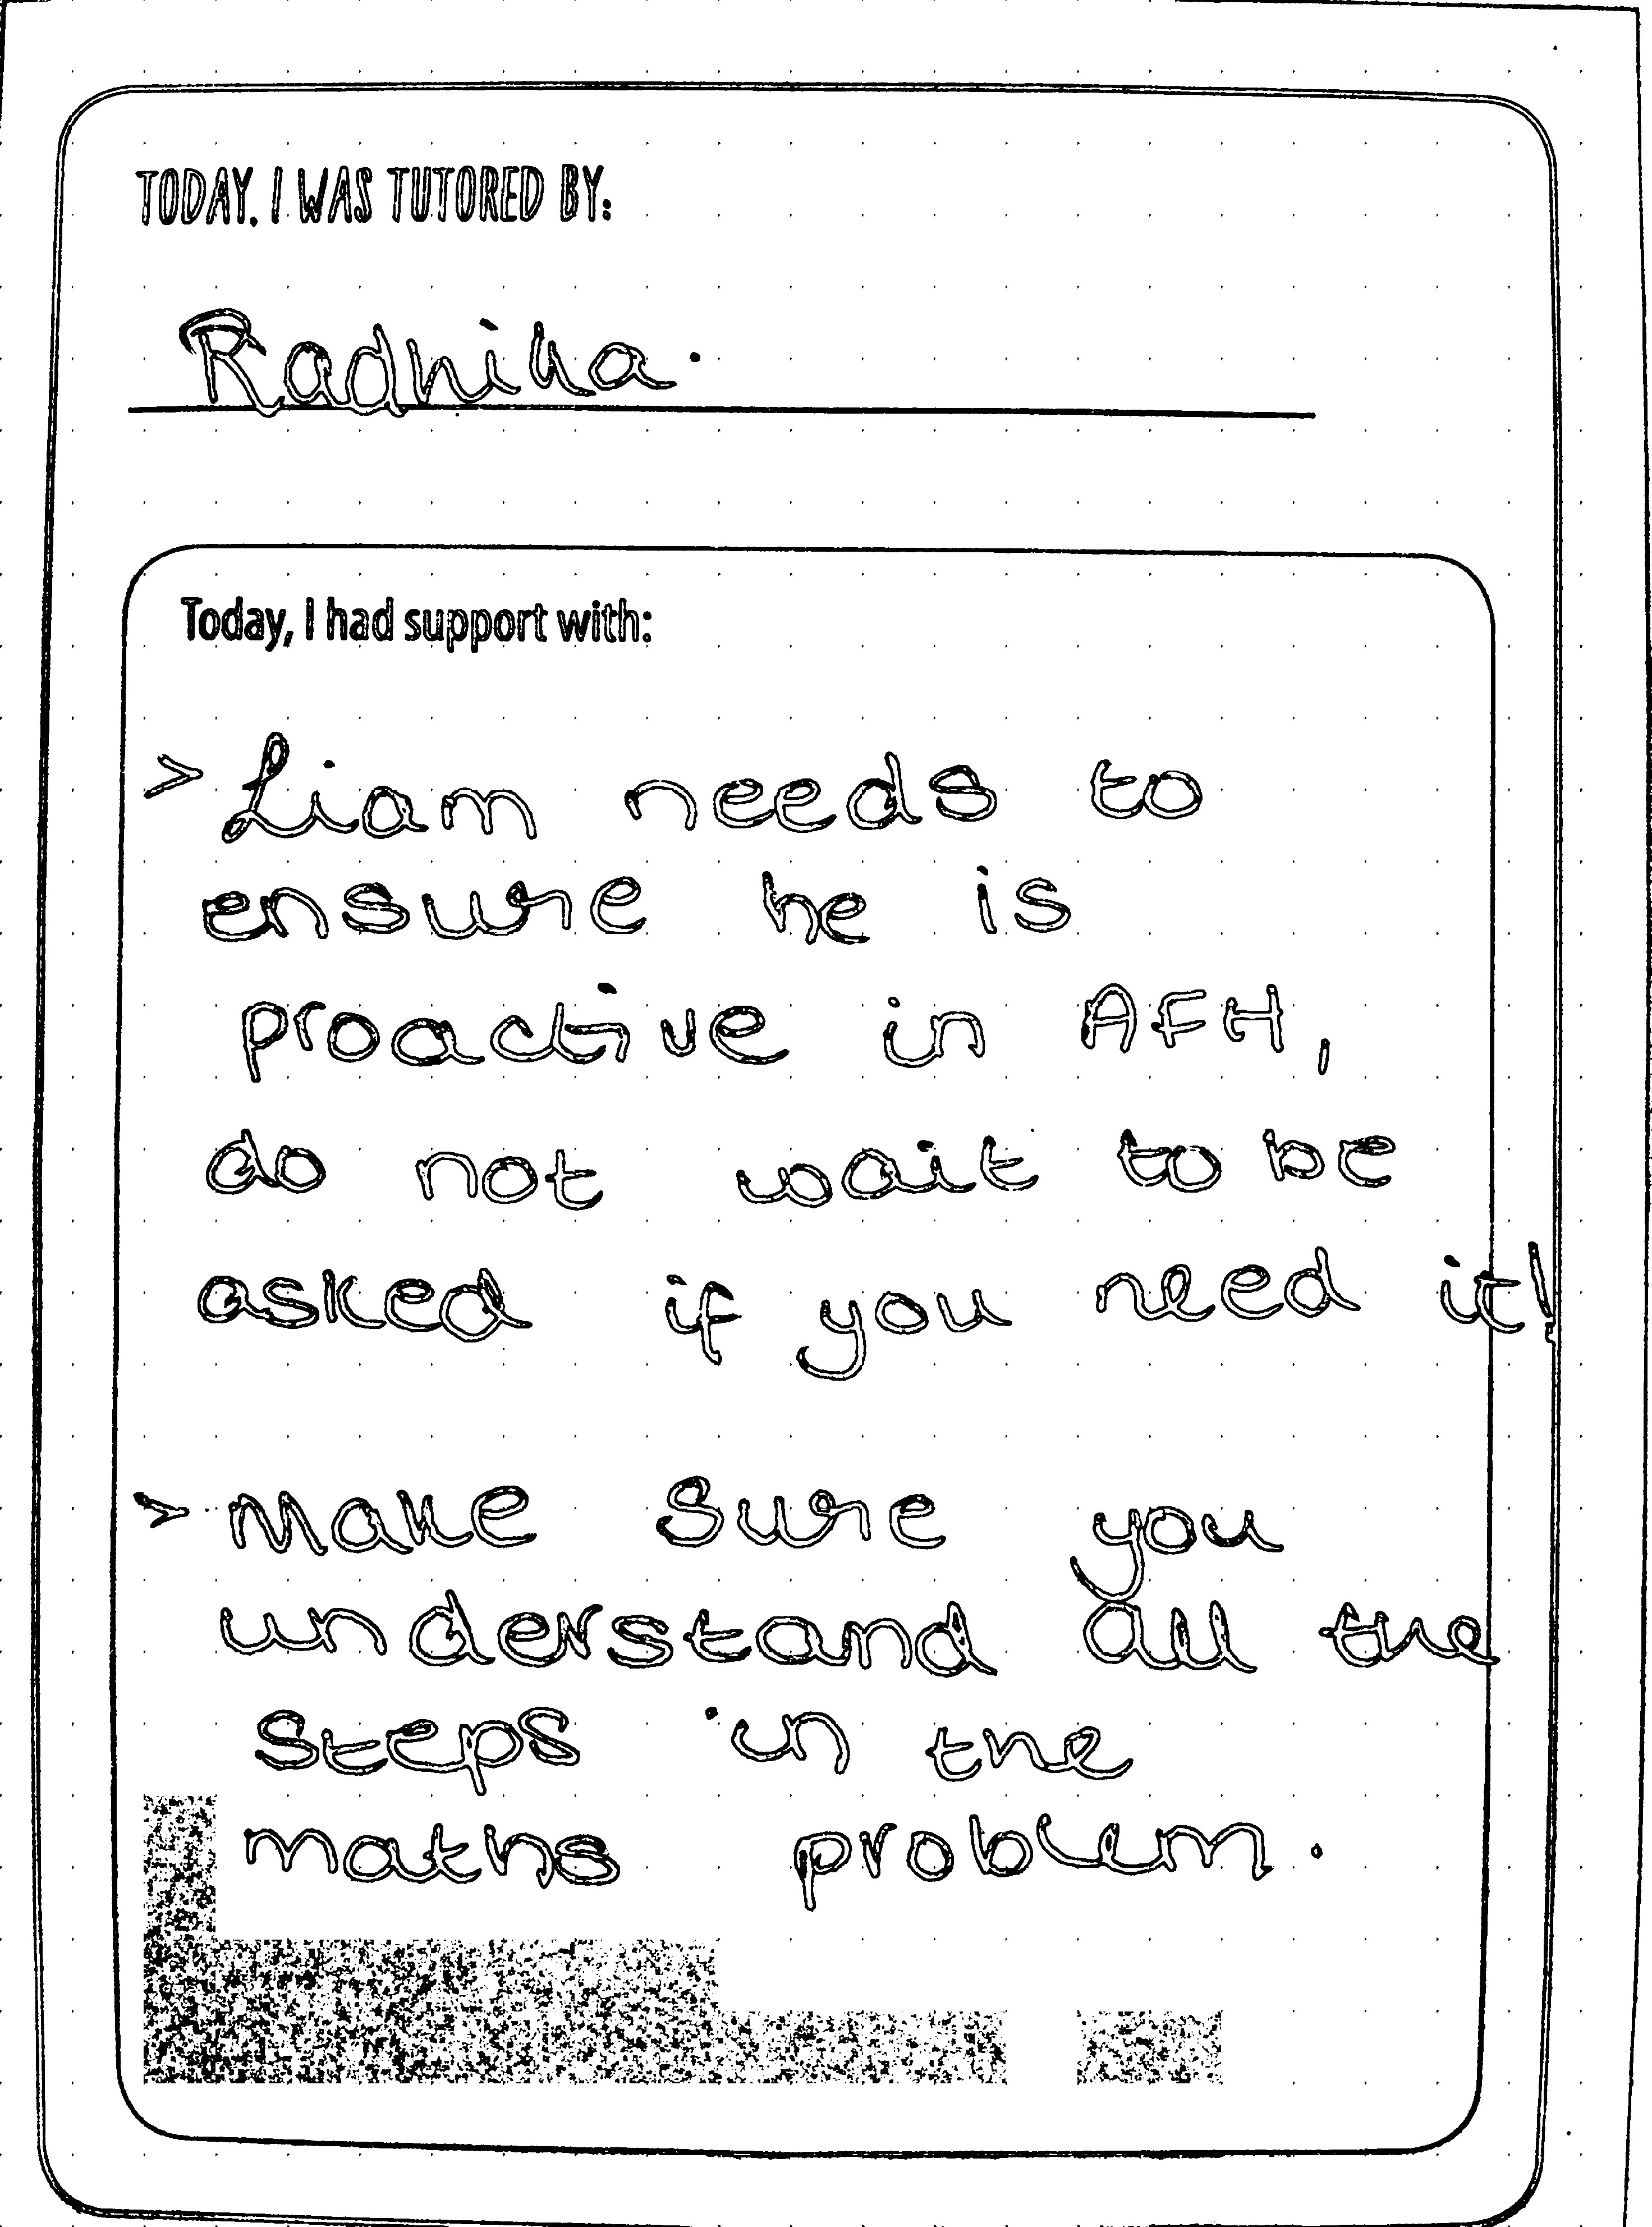 TODAY, I WAS TUTORED BY:
Radhika.
Today, I had support with:
> Liam needs to
ensure he is
proactive in AFH,
do not wait to be
asked if you need it!
> Make sure you
understand all the
steps in the
maths problem.